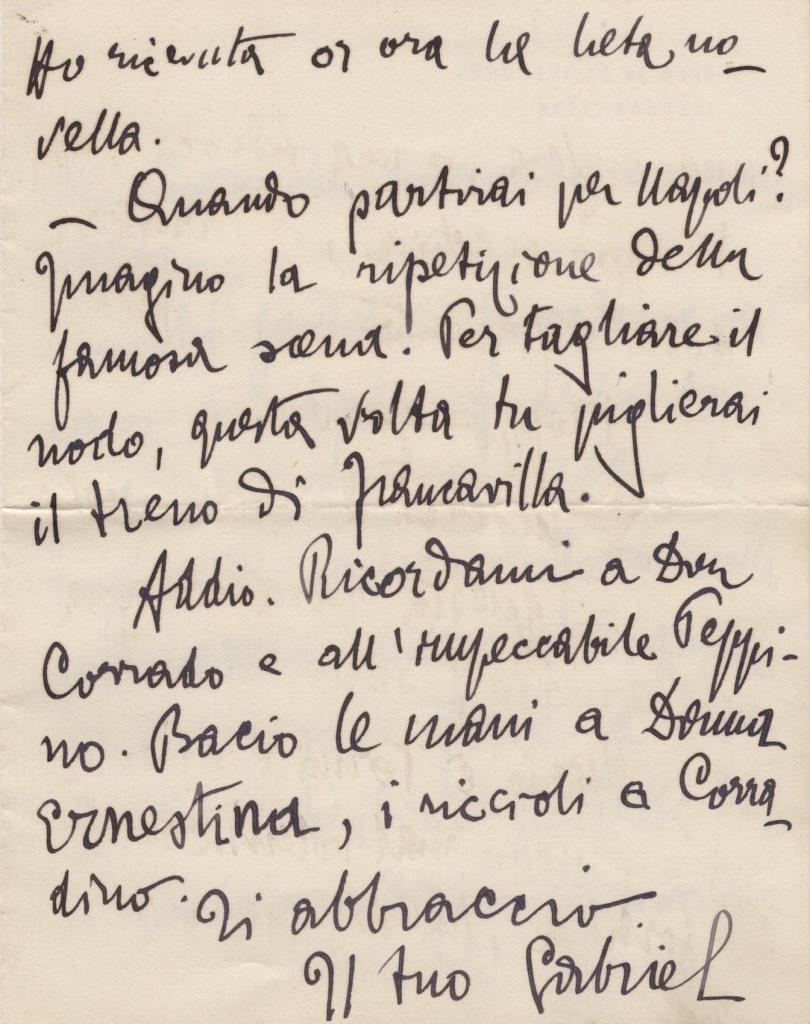 Ho ricevuta or ora la lieta no_
vella.
_ Quando partirai per Napoli?
Imagino la ripetizione della
famosa scena. Per tagliare il
nodo, questa volta tu piglierai
il treno di Francavilla.
Addio. Ricordami a Don
Corrado e all'impeccabile Peppi-
no. Bacio le mani a Donna
Ernestina, i riccioli a Corra_
dino. Ti abbraccio
Il tuo Gabriel